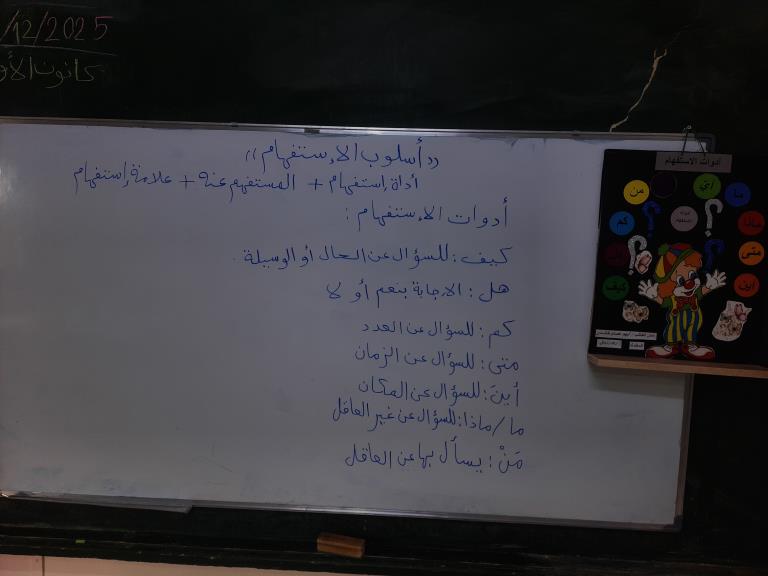 /12/2025
كانون الأو
"أسلوب الاستفهام"
أداة إستفهام + المستفهم عنه + علامة إستفهام
أدوات الاستفهام :
كيف : للسؤال عن الحال أو الوسيلة .
هل : الاجابة بنعم أو لا
كم : للسؤال عن العدد
متى : للسؤال عن الزمان
أينَ : للسؤال عن المكان
ما / ماذا : للسؤال عن غير العاقل
مَنْ : يسأل بها عن العاقل
أدوات الاستفهام
ما
أي
من
ماذا
كم
متى
أين
كيف